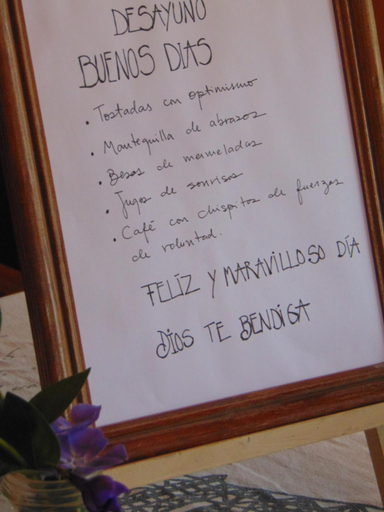 DESAYUNO
BUENOS DIAS
• Tostadas con optimismo
• Mantequilla de abrazos
• Besos de mermeladas
• Jugos de sonrisas
• Café con chispitas de fuerzas
de voluntad.
FELÍZ Y MARAVILLOSO DÍA
DIOS TE BENDIGA